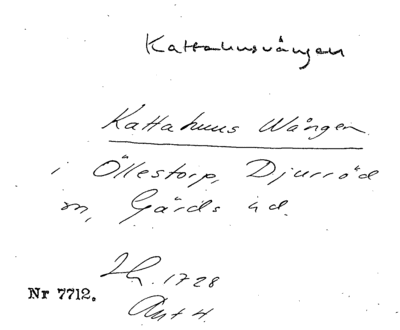 Kattahusvången
Kattahuus Wången
i Öllestorp, Djurröd
m, Gärds hd.
Lh. 1728
Nr 7712.
Ant H.